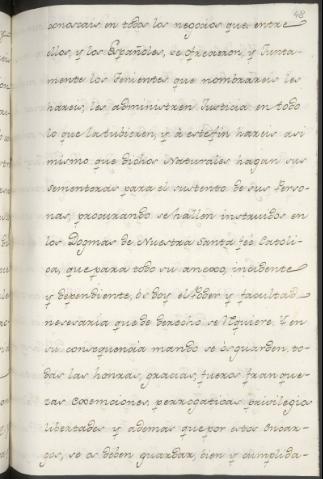 48
conoscais en todos los negocios que entre
ellos, y los Españoles, se ofrecieren, y Junta-
mente los Tenientes que nombrareis les
hareis, les administren Justicia en todo
lo que la tubieren, y á este fin hareis asi
mismo que dichos Naturales hagan sus
sementeras para el sustento de sus Perso-
nas, procurando se hallen instruidos en
los Dogmas de Nuestra Santa fee Catoli-
ca, que para todo su anexo, incidente
y dependiente, ôs doy el Poder y facultad
nesesaria que de derecho se rêquiere. Y en
su consequencia mando se ôs guarden, to-
das las honras, gracias, fueros franque-
zas exempciones, perrogativas privilegios
libertades y ademas que por estos Encar-
gos, se os deben guardar, bien y cumplida-